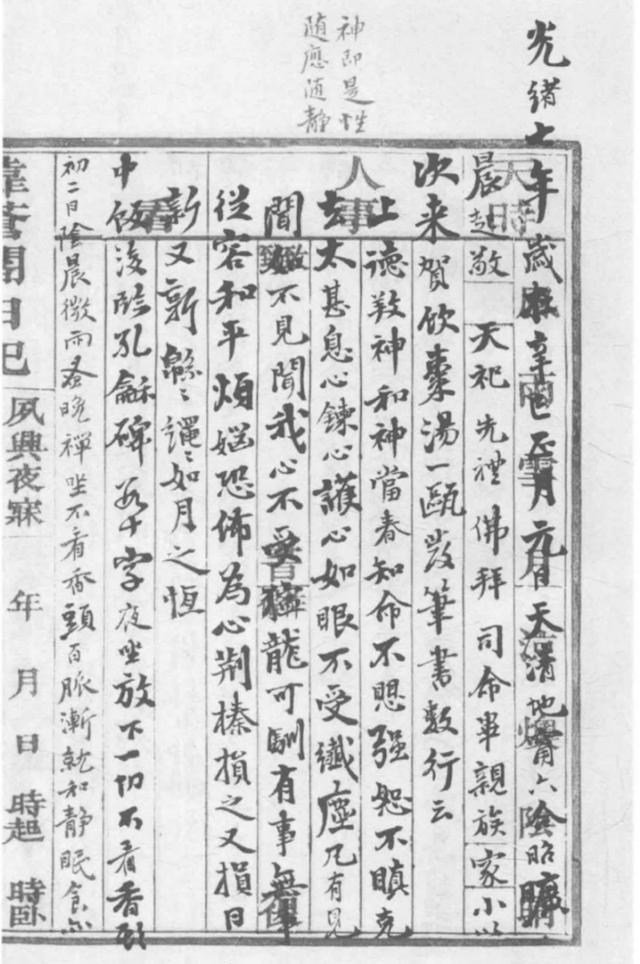 神即是性
随應随静
光緒七年歲在辛巳正月元日天清地甯六陰昭曠
晨起敬天祀先禮佛拜司命畢親族家小以
次来賀飲棗湯一甌發筆書数行云
上德敦神和神當春知命不思强恕不瞋克
去太甚息心鍊心護心如眼不受纖塵凡有見
聞如不見聞我心不受獰龍可馴有事無事
從容和平煩惱恐怖為心荆榛損之又損日
新又新緜緜繩繩如月之恆
中飯後臨孔龢碑若干字夜坐放下一切不看香頭
初二日陰晨微雨蚤晚禪坐不看香頭百脈漸就和静眠食亦
日記
夙興夜寐 年 月 日 時起 時卧
天時
人事